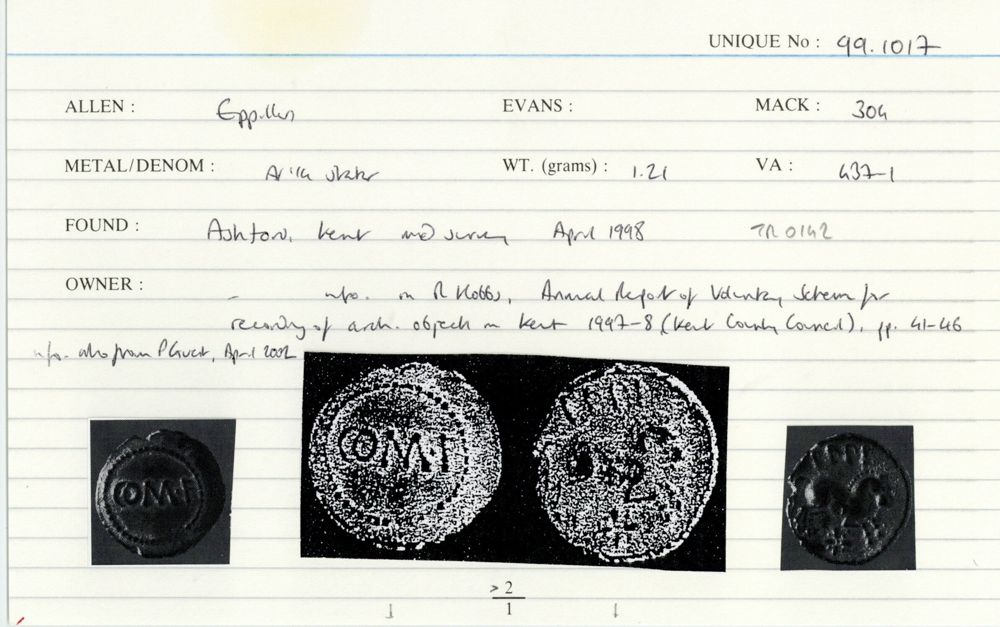 UNIQUE No : 99.1017
ALLEN : Eppillus EVANS : MACK : 304
METAL/DENOM : AV 1/4 stater WT. (grams) : 1.21 VA : 437-1
FOUND : Ashford, Kent m/d survey April 1998 TR 0142
OWNER : - info. in R Hobbs, Annual Report of Voluntary Scheme for
recording of arch. objects in Kent 1997-8 (Kent County Council), pp. 41-46
info. also from P Guest, April 2002
COM·F
COM·F
EPPI
> 2
1